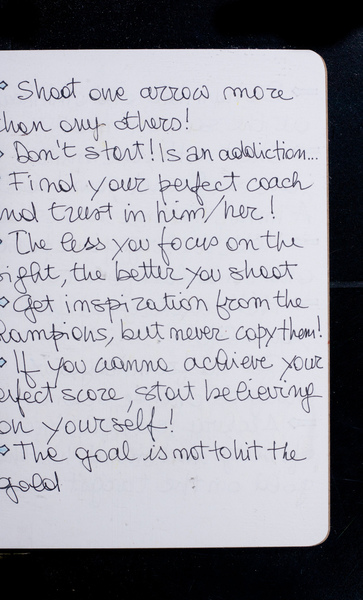 Shoot one arrow more
than any others!
Don't start! Is an addiction...
Find your perfect coach
nd trust in him/her!
The less you focus on the
sight, the better you shoot
Get inspiration from the
hampions, but never copy them!
If you wanna achieve your
erfect score, start believing
on yourself!
The goal is not to hit the
gold